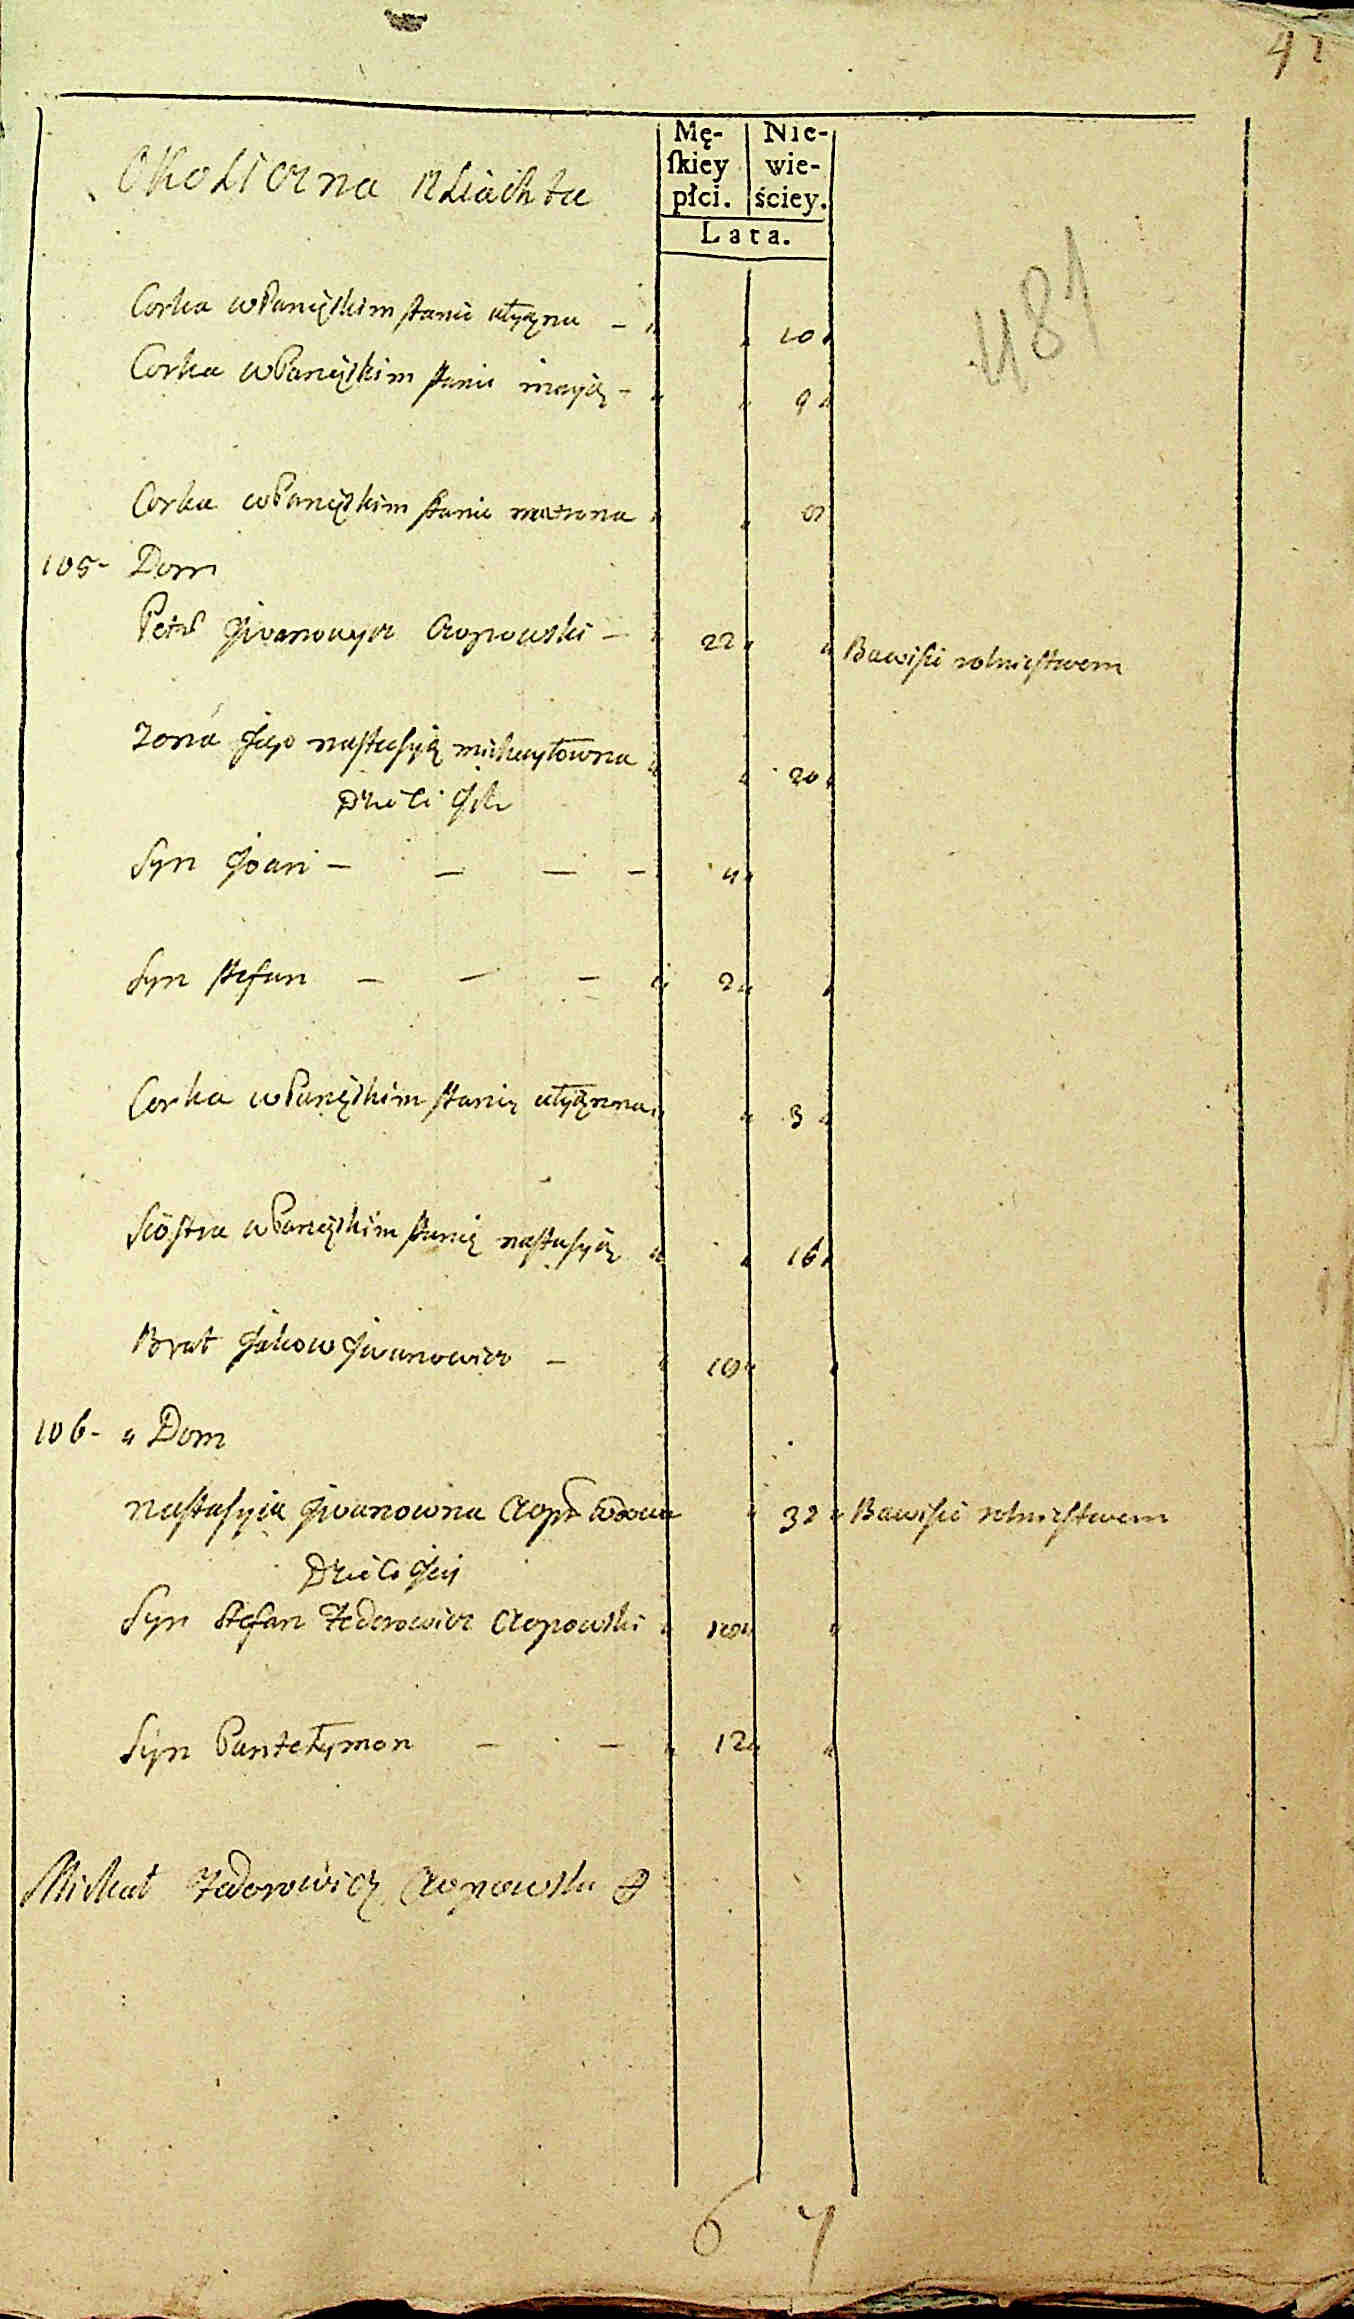 42
Okoliczna szliachta
Mę-
skiey
płci.
Nie-
wie-
ściey.
Lata.
481
Corka w Panięskim stanie 10
Corka w Panięskim stanie 9
Corka w Panięskim stanie matrona
105 - Dom
Petr Jwanowycz Czopowski - 22 Bawi się rolnictwem
Zona Jego nastasyia michayłowna 20
Dzieci Jch
Syn Joan - - - - 4
Syn stefan - - - 2
Corka w Panięskim stanie 3
Siostra w Panięskim stanie nastasyia 16
Brat Jakow Jwanowicz - 10
106 - Dom
nastasyia Jwanowna wdowa 32 Bawi się rolnictwem
Dzieci Jey
Syn Stefan Fedorowicz Czopowski
Syn Pantełymon - - 12
Michał Fedorowicz Czopowski
6 7